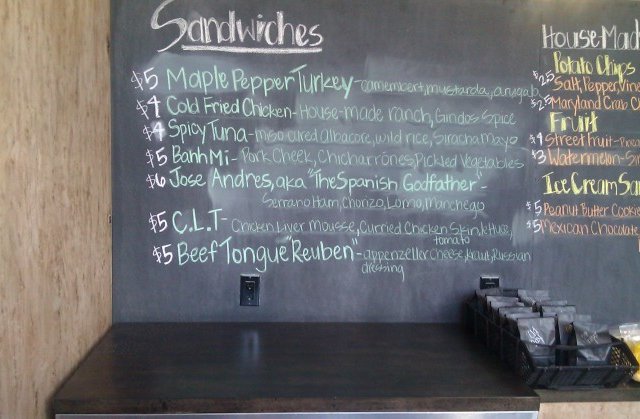 Sandwiches
$5 Maple Pepper Turkey - camembert, mustarda, arugab
$4 Cold Fried Chicken - House-made ranch, Gindos Spice
$4 Spicy Tuna - miso cured albacore, wild rice, Siracha Mayo
$5 Bahh Mi - Pork Cheek, Chicharrones, Pickled Vegetables
$6 Jose Andres, aka "The Spanish Godfather" -
Serrano Ham, Chorizo, Lomo, Manchego
$5 C.L.T - Chicken Liver Mousse, Curried Chicken Skin, lettuce,
tomato
$5 Beef Tongue "Reuben" - appenzeller cheese, kraut, Russian
dressing
House-Mad
Potato Chips
$2.5 Salt, Pepper, Vine
$2.5 Maryland Crab
Fruit
$4 Street fruit -
$3 Watermelon -
Ice Cream San
$5 Peanut Butter Cook
$5 Mexican Chocolate,